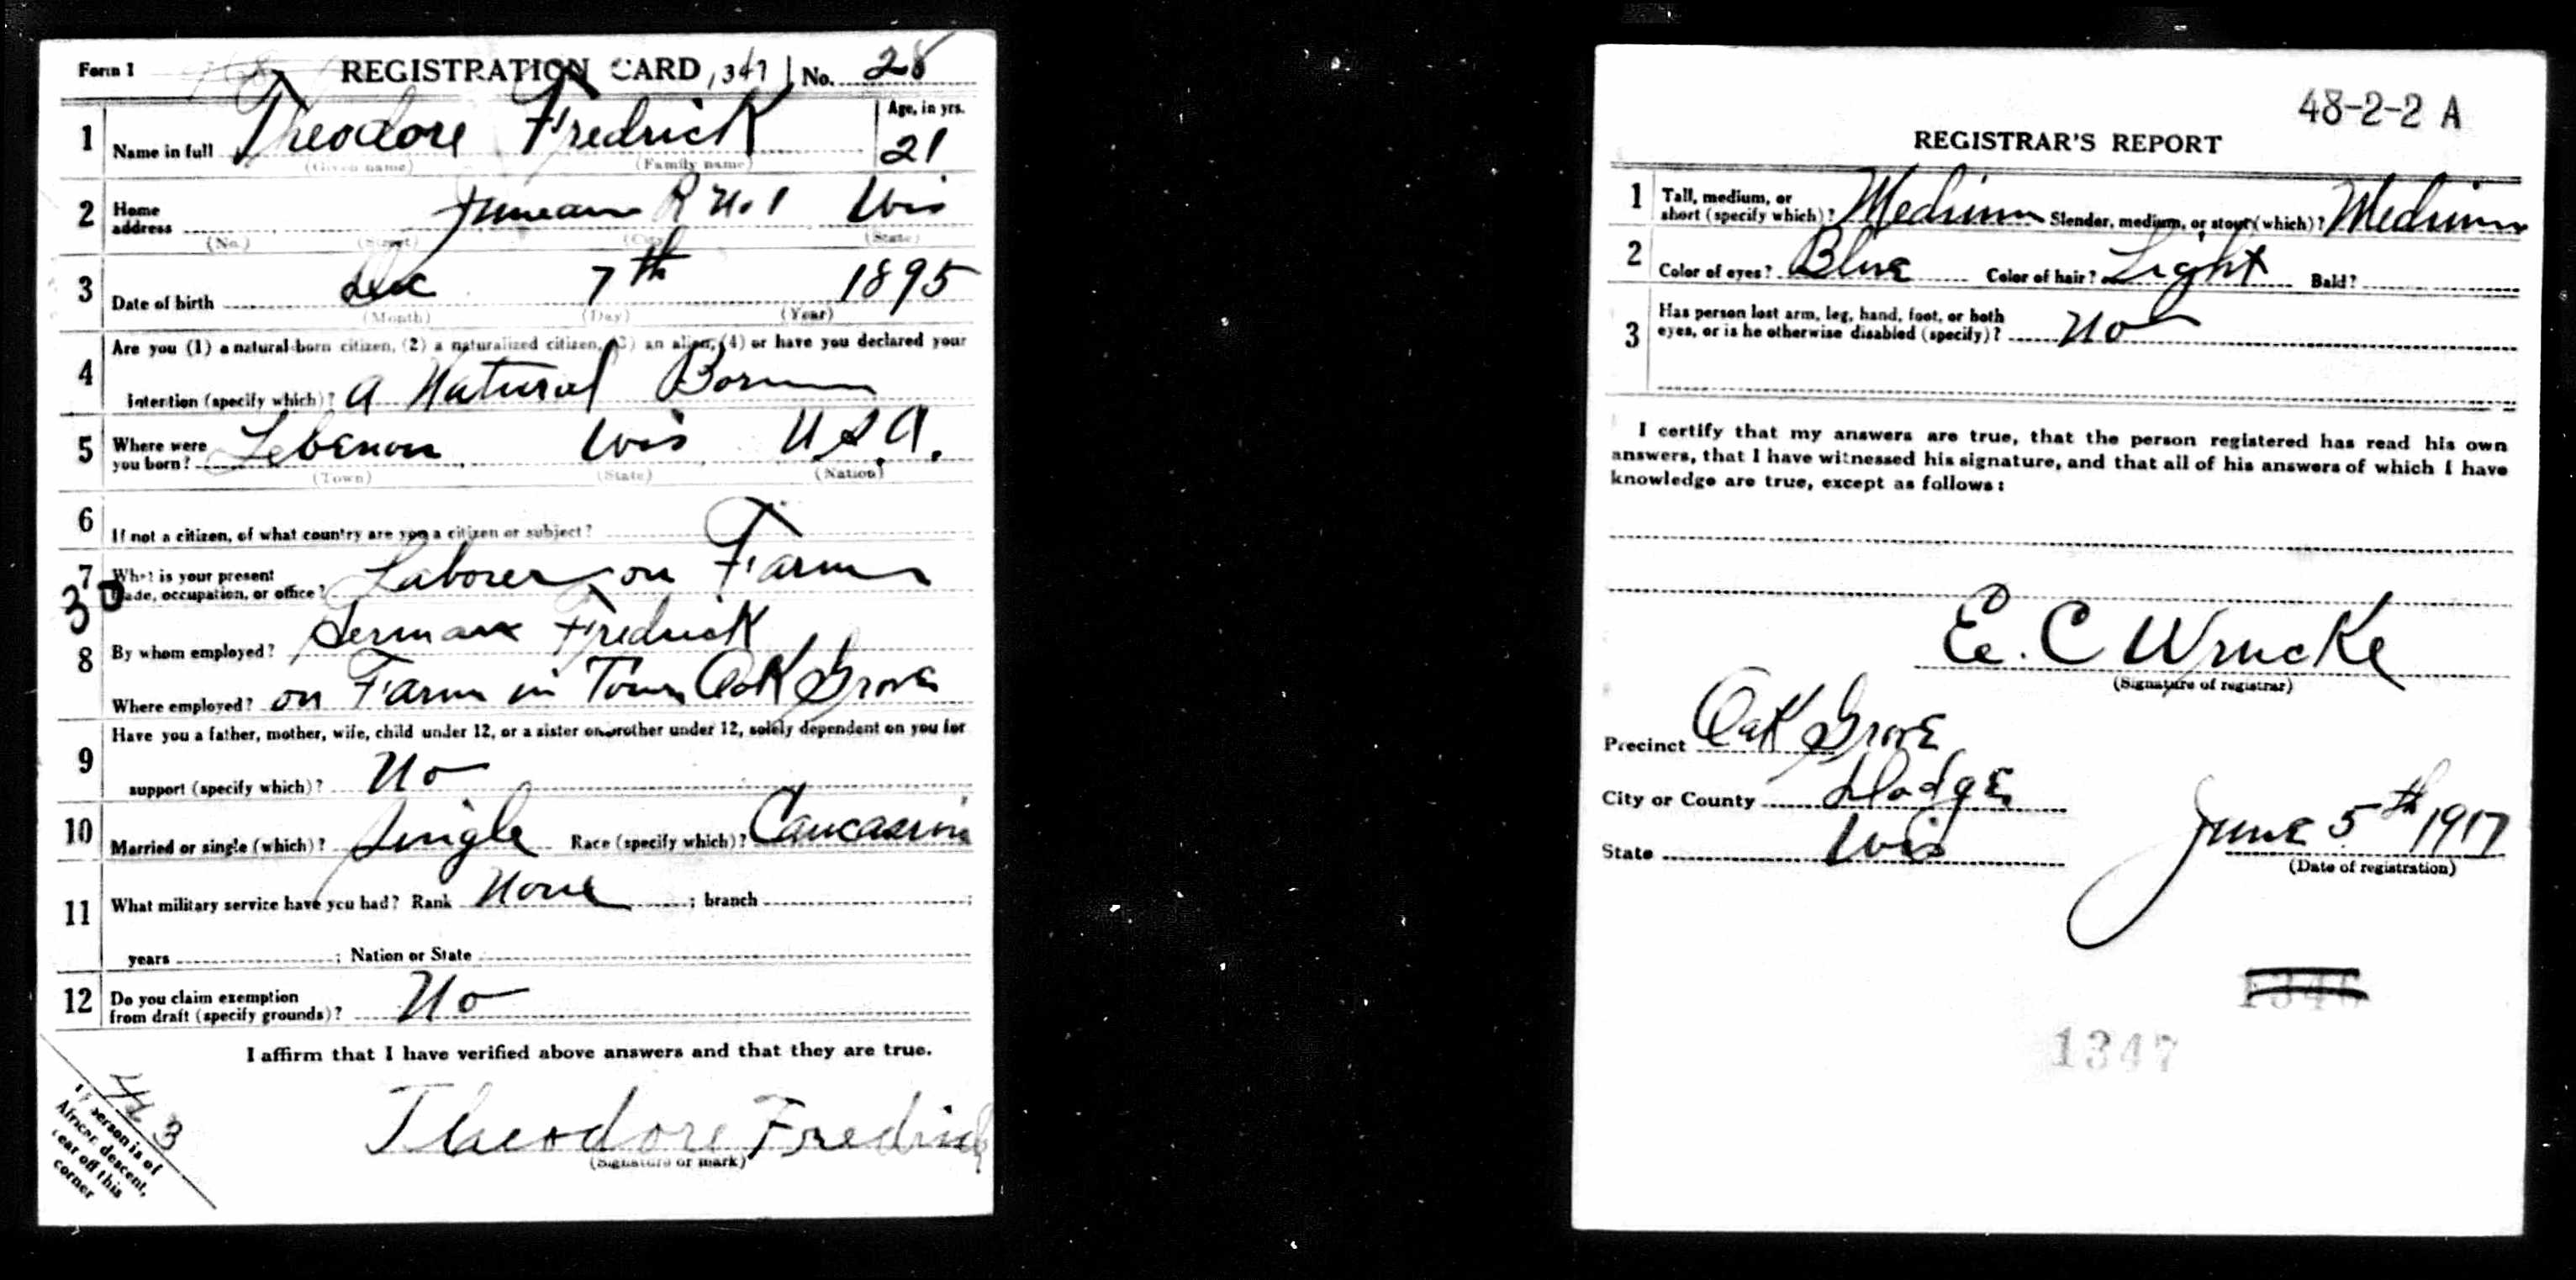 Form 1 REGISTRATION CARD 1347 No. 28
1 Name in full Theodore Fredrick Age, in yrs. 21
(Given name) (Family name)
2 Home address Juneau R No 1 Wis
(No.) (Street) (City) (State)
3 Date of birth Dec 7th 1895
(Month) (Day) (Year)
4 Are you (1) a natural-born citizen, (2) a naturalized citizen, (3) an alien, (4) or have you declared your
intention (specify which)? a Natural Born
5 Where were you born? Lebenon Wis U.S.A.
(Town) (State) (Nation)
6 If not a citizen, of what country are you a citizen or subject?
7 What is your present trade, occupation, or office? Laborer on Farm
30
8 By whom employed? Herman Fredrick
Where employed? on Farm in Town Oak Grove
9 Have you a father, mother, wife, child under 12, or a sister or brother under 12, solely dependent on you for
support (specify which)? No
10 Married or single (which)? Single Race (specify which)? Caucasian
11 What military service have you had? Rank None ; branch ;
years ; Nation or State
12 Do you claim exemption from draft (specify grounds)? No
I affirm that I have verified above answers and that they are true.
Theodore Fredrick
(Signature or mark)
If person is of
African descent,
tear off this
corner
48-2-2 A
REGISTRAR'S REPORT
1 Tall, medium, or short (specify which)? Medium Slender, medium, or stout (which)? Medium
2 Color of eyes? Blue Color of hair? Light Bald?
3 Has person lost arm, leg, hand, foot, or both
eyes, or is he otherwise disabled (specify)? No
I certify that my answers are true, that the person registered has read his own
answers, that I have witnessed his signature, and that all of his answers of which I have
knowledge are true, except as follows:
Ee. C Wrucke
(Signature of registrar)
Precinct Oak Grove
City or County Dodge
State Wis
June 5th 1917
(Date of registration)
1346
1347